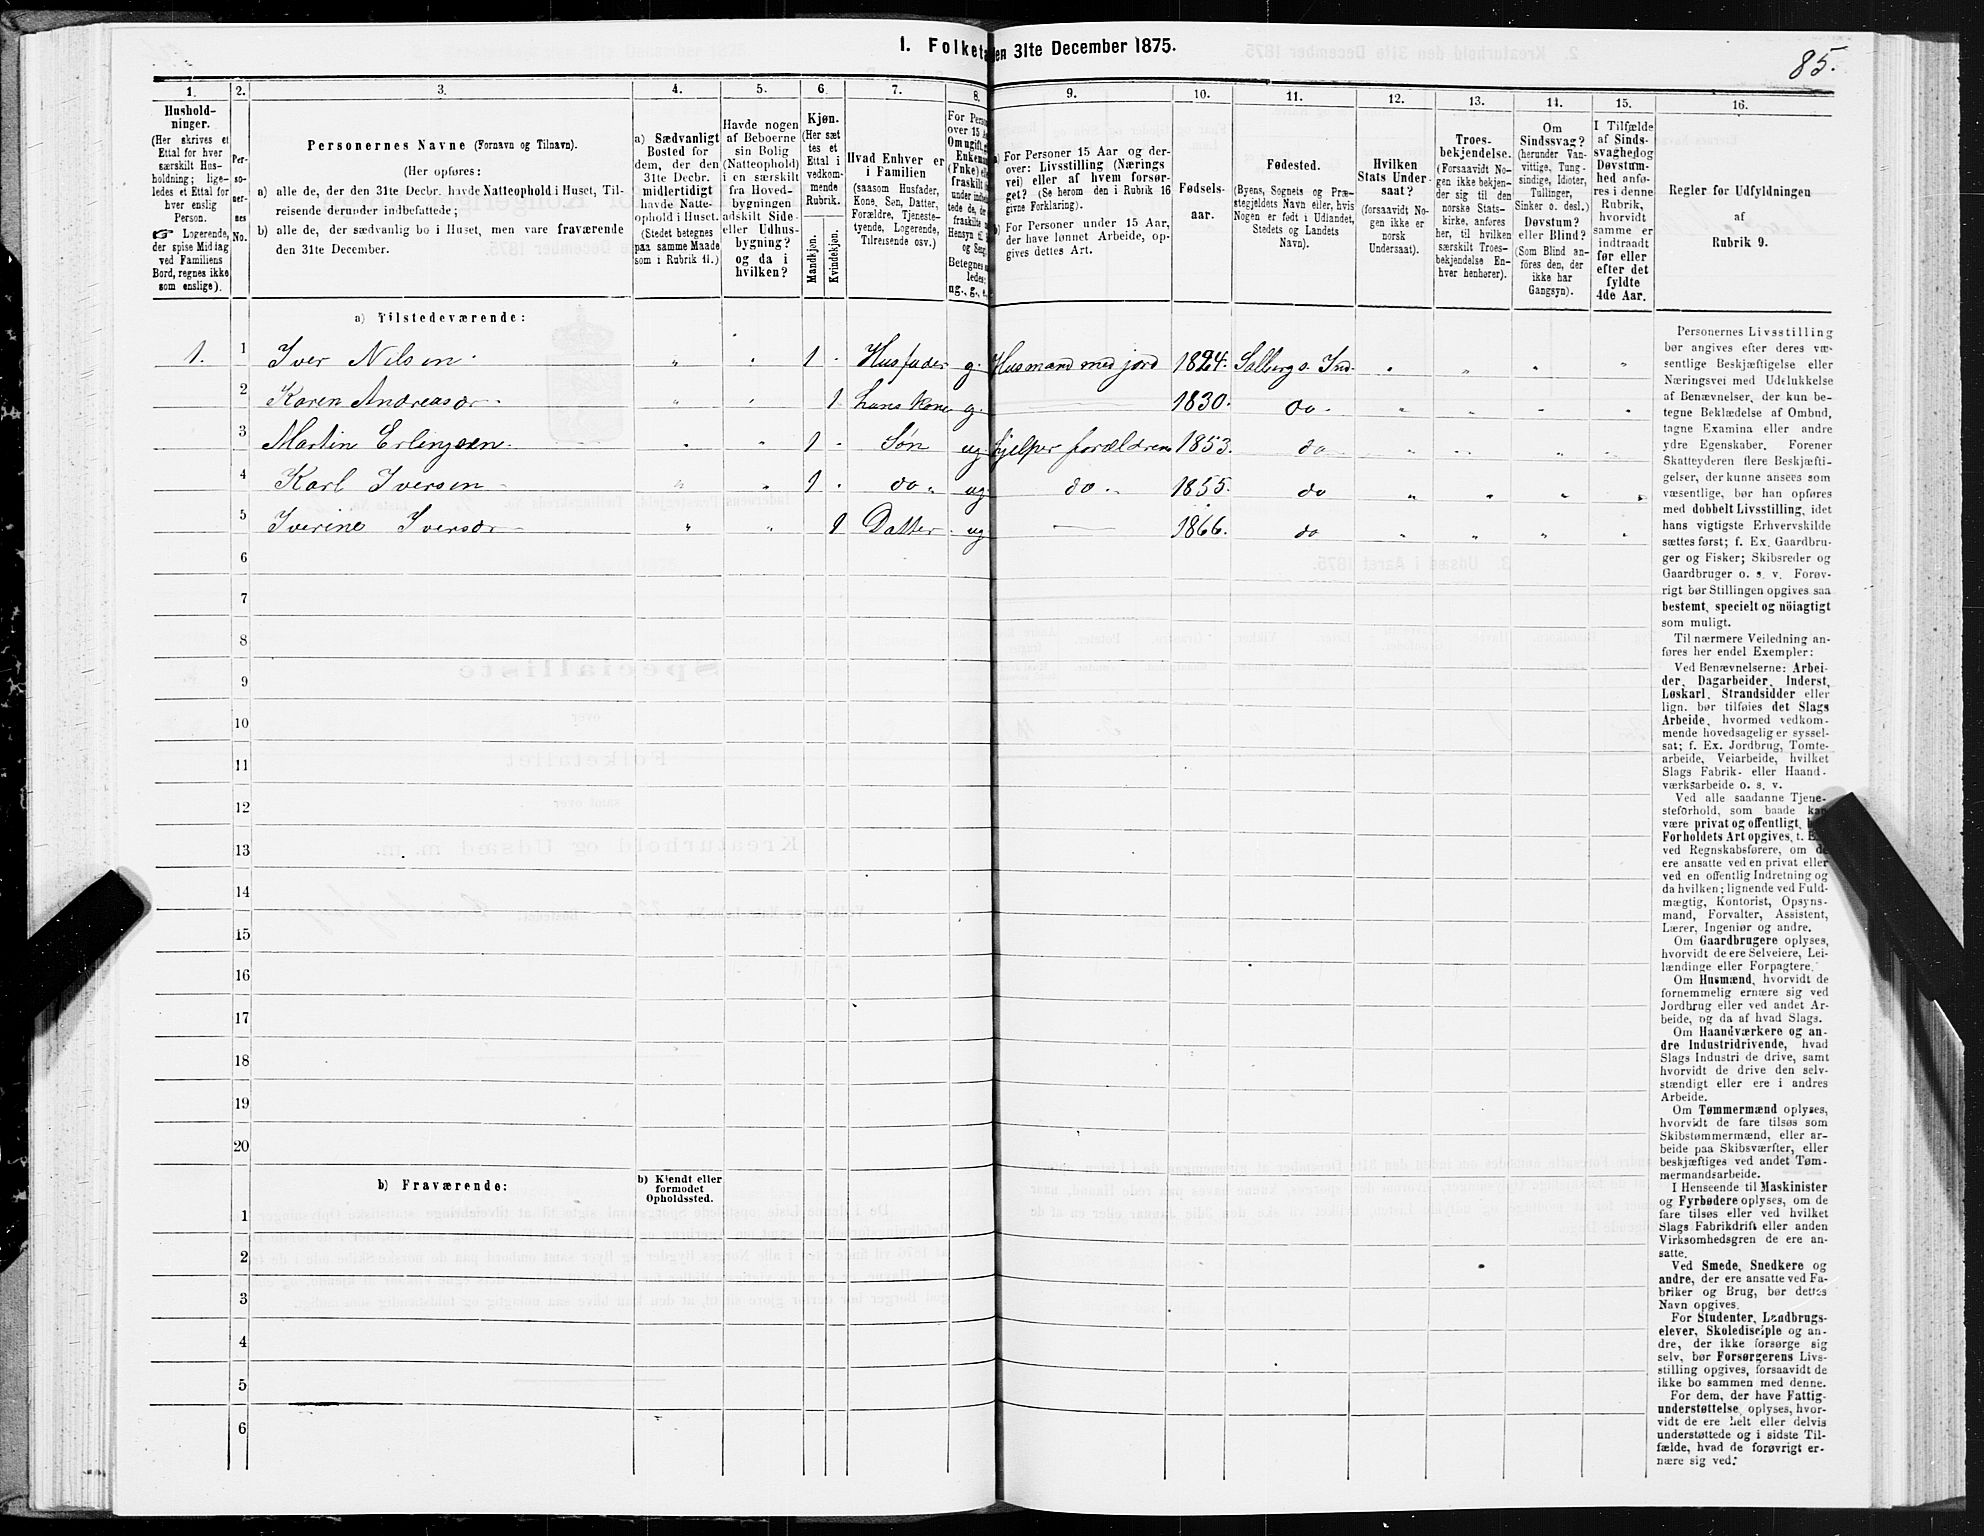 I. Folketa
en 31te December 1875.
85.
1. 2. 3. 4. 5. 6. 7. 8. 9. 10. 11. 12. 13. 14. 15. 16.
Hushold-
ninger.
(Her skrives et
Ettal for hver
særskilt Hus-
holdning; lige-
ledes et Ettal for
hver enslig
Person.
☞ Logerende,
der spise Middag
ved Familiens
Bord, regnes ikke
som enslige).
Per-
so-
ner-
nes
No.
Personernes Navne (Fornavn og Tilnavn).
(Her opføres:
a) alle de, der den 31te Decbr. havde Natteophold i Huset, Til-
reisende derunder indbefattede;
b) alle de, der sædvanlig bo i Huset, men vare fraværende
den 31te December.
a) Sædvanligt
Bosted for
dem, der den
31te Decbr.
midlertidigt
havde Natte-
ophold i Huset.
(Stedet betegnes
paa samme Maade
som i Rubrik 11.)
Havde nogen
af Beboerne
sin Bolig
(Natteophold)
i en særskilt
fra Hoved-
bygningen
adskilt Side-
eller Udhus-
bygning?
og da i
hvilken?
Kjøn.
(Her sæt-
tes et
Ettal i
vedkom-
mende
Rubrik.
Mandkjøn.
Kvindekjøn.
Hvad Enhver er
i Familien
(saasom Husfader,
Kone, Søn, Datter,
Forældre, Tjeneste-
tyende, Logerende,
Tilreisende osv.)
For Person
over 15 Aa
Om ugift, g
Enkeman
(Fnke) ell
fraskilt
under inden
tede de, de
fraskilte
Hensyn ti
og Seng
Betegnes
ledes:
ug., g., e.
a) For Personer 15 Aar og der-
over: Livsstilling (Nærings
vei) eller af hvem forsør-
get? (Se herom den i Rubrik 16
givne Forklaring).
b) For Personer under 15 Aar,
der have lønnet Arbeide, op-
gives dettes Art.
Fødsels-
aar.
Fødested.
(Byens, Sognets og Præ-
stegjeldets Navn eller, hvis
Nogen er født i Udlandet,
Stedets og Landets
Navn).
Hvilken
Stats Under
saat?
(forsaavidt No-
gen ikke er
norsk
Undersaat).
Troes-
bekjendelse.
(Forsaavidt No-
gen ikke bekjen-
der sig til den
norske Stats-
kirke, anføres
her, til hvilket
særskilt Troes-
bekjendelse En-
hver henhører).
Om
Sindssvag?
(herunder Van-
vittige, Tung-
sindige, Idioter,
Tullinger,
Sinker o. desl.)
Døvstum?
eller Blind?
(Som Blind an-
føres den, der
ikke har
Gangsyn).
I Tilfælde
af Sinds-
svaghed og
Døvstum-
hed anfø-
res i denne
Rubrik,
hvorvidt
samme er
indtraadt
før eller
efter det
fyldte
4de Aar.
Regler for Udfyldningen
af
Rubrik 9.
a) Tilstedeværende:
1. 1 Iver Nilsen. " " 1 - Husfader g. Husmand med jord 1824. Salberg s. Ind. " " " "
2 Karen Andreasdr. " " 1 hans kone g. 1830. do. " " " "
3 Martin Erlingsen. " " 1 - Søn ug. hjelper forældrene 1853. do " " " "
4 Karl Iversen " " 1 - do. ug. do. 1855. do " " " "
5 Iverine Iversdr " " 1 Datter ug 1866. do " " " "
6
7
8
9
10
11
12
13
14
15
16
17
18
19
20
b) Fraværende: b) Kjendt eller
formodet
Opholdssted.
1
2
3
4
5
6
Personernes Livsstilling
bør angives efter deres væ-
sentlige Beskjæftigelse eller
Næringsvei med Udelukkelse
af Benævnelser, der kun be-
tegne Beklædelse af Ombud,
tagne Examina eller andre
ydre Egenskaber. Forener
Skatteyderen flere Beskjæfti-
gelser, der kunne ansees som
væsentlige, bør han opføres
med dobbelt Livsstilling, idet
hans vigtigste Erhvervskilde
sættes først; f. Ex. Gaardbru-
ger og Fisker; Skibsreder og
Gaardbruger o. s. v. Forøv-
rigt bør Stillingen opgives saa
bestemt, specielt og nöiagtigt
som muligt.
Til nærmere Veiledning an-
føres her endel Exempler:
Ved Benævnelserne: Arbei-
der, Dagarbeider, Inderst,
Løskarl, Strandsidder eller
lign. bør tilføies det Slags
Arbeide, hvormed vedkom-
mende hovedsagelig er syssel-
sat; f. Ex. Jordbrug, Tomte-
arbeide, Veiarbeide, hvilket
Slags Fabrik- eller Haand-
værksarbeide o. s. v.
Ved alle saadanne Tjene-
steforhold, som baade kan
være privat og offentligt,
Forholdets Art opgives, t. E
ved Regnskabsførere, om de
ere ansatte ved en privat eller
ved en offentlig Indretning og
da hvilken; lignende ved Fuld-
mægtig, Kontorist, Opsyns-
mand, Forvalter, Assistent,
Lærer, Ingeniør og andre.
Om Gaardbrugere oplyses,
hvorvidt de ere Selveiere, Lei-
lændinge eller Forpagtere.
Om Husmænd, hvorvidt de
fornemmelig ernære sig ved
Jordbrug eller ved andet Ar-
beide, og da af hvad Slags.
Om Haandværkere og an-
dre Industridrivende, hvad
Slags Industri de drive, samt
hvorvidt de drive den selv-
stændigt eller ere i andres
Arbeide.
Om Tømmermænd oplyses,
hvorvidt de fare tilsøs som
Skibstømmermænd, eller ar-
beide paa Skibsværfter, eller
beskjæftiges ved andet Tøm-
mermandsarbeide.
I Henseende til Maskinister
og Fyrbødere oplyses, om de
fare tilsøs eller ved hvilket
Slags Fabrikdrift eller anden
Virksomhedsgren de ere an-
satte.
Ved Smede, Snedkere og
andre, der ere ansatte ved Fa-
briker og Brug, bør dettes
Navn opgives.
For Studenter, Landbrugs-
elever, Skoledisciple og an-
dre, der ikke forsørge sig
selv, bør Forsørgerens Livs-
stilling opgives, forsaavidt de
ikke bo sammen med denne.
For dem, der have Fattig-
understøttelse, oplyses, hvor-
vidt de ere helt eller delvis
understøttede og i sidste Til-
fælde, hvad de forøvrigt er-
nære sig ved.